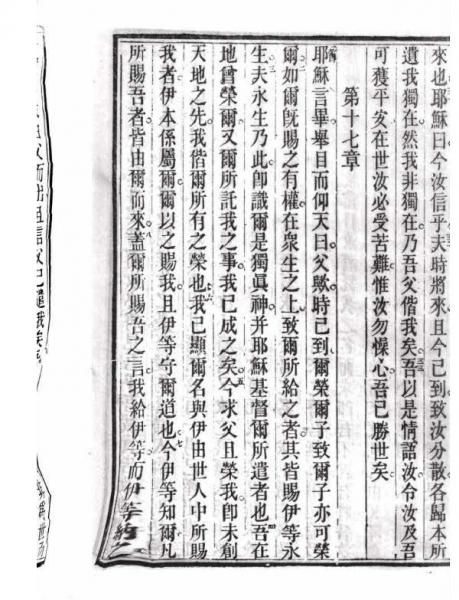 來也耶穌曰今汝信乎夫時將來且今已到致汝分散各歸本所
遺我獨在然我非獨在乃吾父偕我矣吾以是情語汝令汝及吾
可獲平安在世汝必受苦難惟汝勿懆心吾已勝世矣
第十七章
耶穌言畢舉目而仰天曰父歟時已到爾榮爾子致爾子亦可榮
爾如爾旣賜之有權在衆生之上致爾所給之者其皆賜伊等永
生夫永生乃此卽識爾是獨眞神并耶穌基督爾所遣者也吾在
地曾榮爾又爾所託我之事我已成之矣今求父且榮我卽未創
天地之先我偕爾所有之榮也我已顯爾名與伊由世人中所賜
我者伊本係屬爾爾以之賜我且伊等守爾道也今伊等知爾凡
所賜吾者皆由爾而來蓋爾所賜吾之言我給伊等而伊等納之
父而出且信父已遣我矣